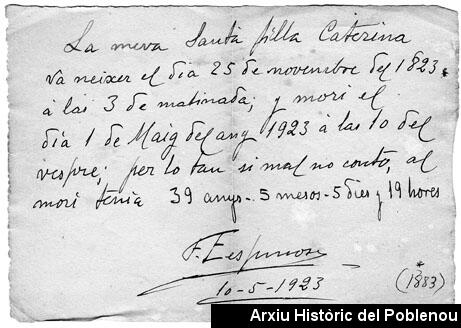 La meva Santa filla Caterina
va neixer el dia 25 de novembre del 1823 *
à las 3 de matinada; y morí el
dia 1 de Maig del any 1923 à las 10 del
vespre; per lo tan si mal no conto, al
morí tenia 39 anys - 5 mesos - 5 dies y 19 hores
F. Espinosa
10-5-1923
*
(1883)
Arxiu Històric del Poblenou